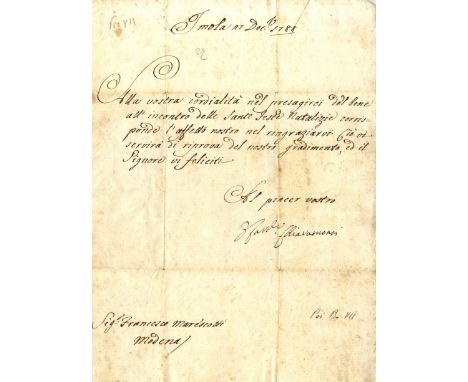 Pio VII
Imola 21 Decre 1788
Alla vostra cordialità nel presagirci del bene
all' incontro delle Sante Feste Natalizie corris-
ponde l'affetto nostro nel ringraziarvi. Ciò vi
servirà di riprova del nostro gradimento, ed il
Signore vi feliciti
Al piacer vostro
Chiaramonti
Sigr. Francesco Marescotti
Modena
VII